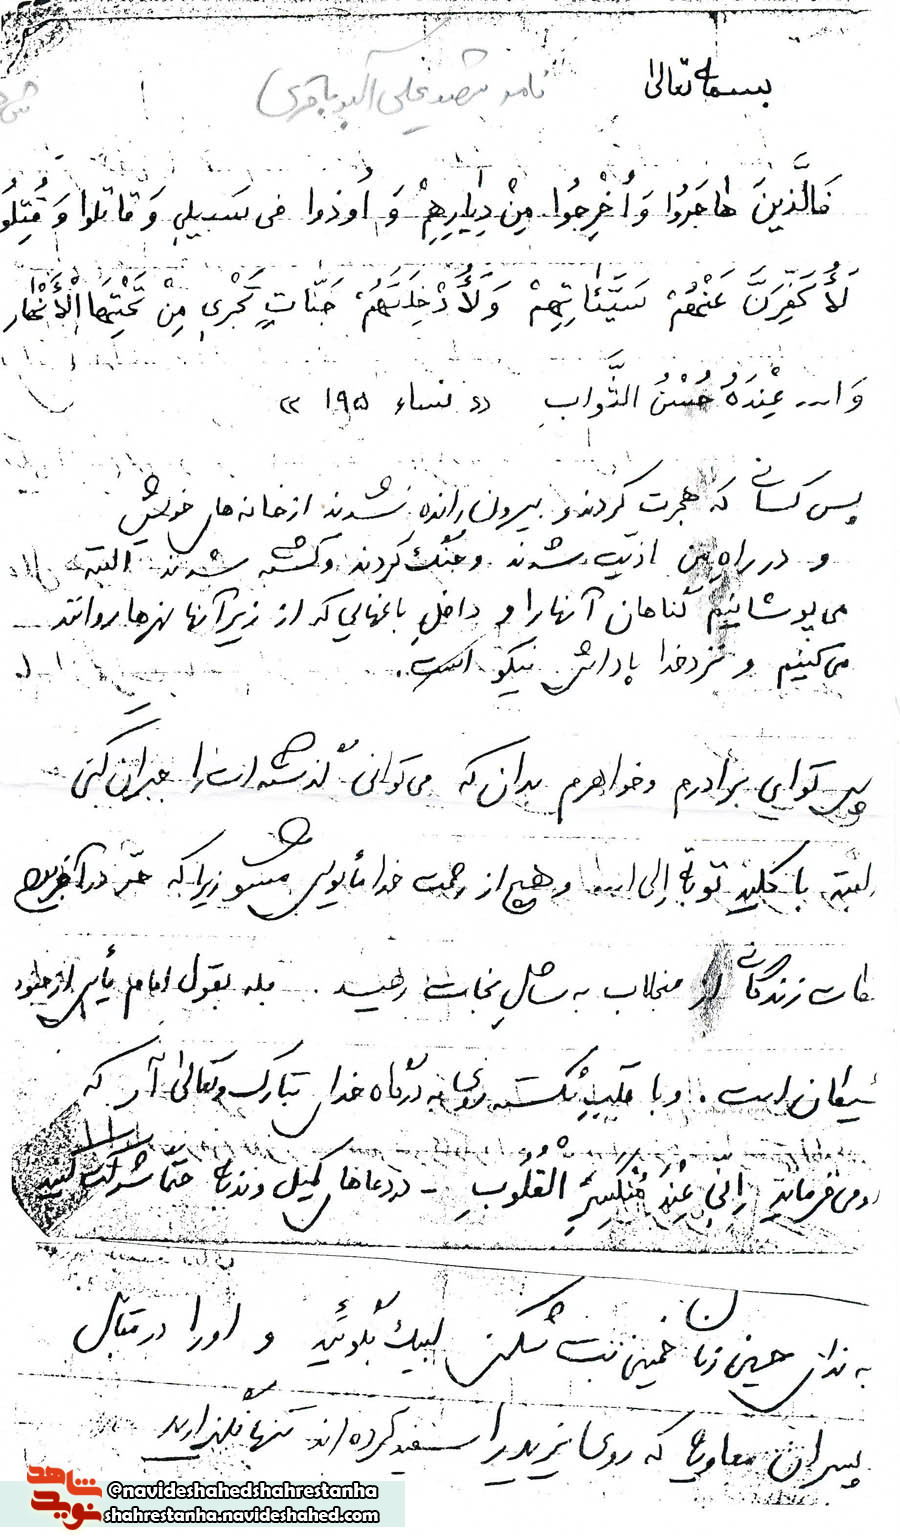 بسمه تعالی
نامه شهید علی اکبر باقری
فَالَّذینَ هٰاجَرُوا وَ اُخْرِجُوا مِنْ دِیٰارِهِمْ وَ اُوذوا فی سَبیلی وَ قاتَلوا وَ قُتِلُوا
لَأُکَفِّرَنَّ عَنْهُمْ سَیِّئٰاتِهِمْ وَلَأُدْخِلَنَّهُمْ جَنّاتٍ تَجْری مِنْ تَحْتِهَا الْأَنْهار
وَ ا... عِنْدَهُ حُسْنُ الثَّواب «نساء ۱۹۵»
پس کسانی که هجرت کردند و بیرون رانده شدند از خانه های خویش
و در راه من اذیت شدند و جنگ کردند و کشته شدند البته
می پوشانیم گناهان آنها را و داخل باغهایی که از زیر آنها نهرها روانند
می کنیم و نزد خدا پاداش نیکو است.
پس تو ای برادرم و خواهرم بدان که می توانی گذشته ات را جبران کنی
البته با کلید توبة إلی ا... و هیچ از رحمت خدا مأیوس مشو زیرا که حرّ در آخرین
لحظات زندگانی از منجلاب به ساحل نجات رهید. بله بقول امام یأس از جنود
شیطان است. و با قلب شکسته روی به درگاه خدای تبارک و تعالی آر که
او می فرماید إنّی عِنْدَ مُنْکَسِرَةِ الْقُلُوبِ - در دعاهای کمیل و ندبه حتماً شرکت کنید
به ندای حسین زمان خمینی بت شکن لبیک بگوئید و او را در مقابل
پسران معاویه که روی یزید را سفید کرده اند تنها نگذارید
شاهد
نوید
@navideshahedshahrestanha
shahrestanha.navideshahed.com